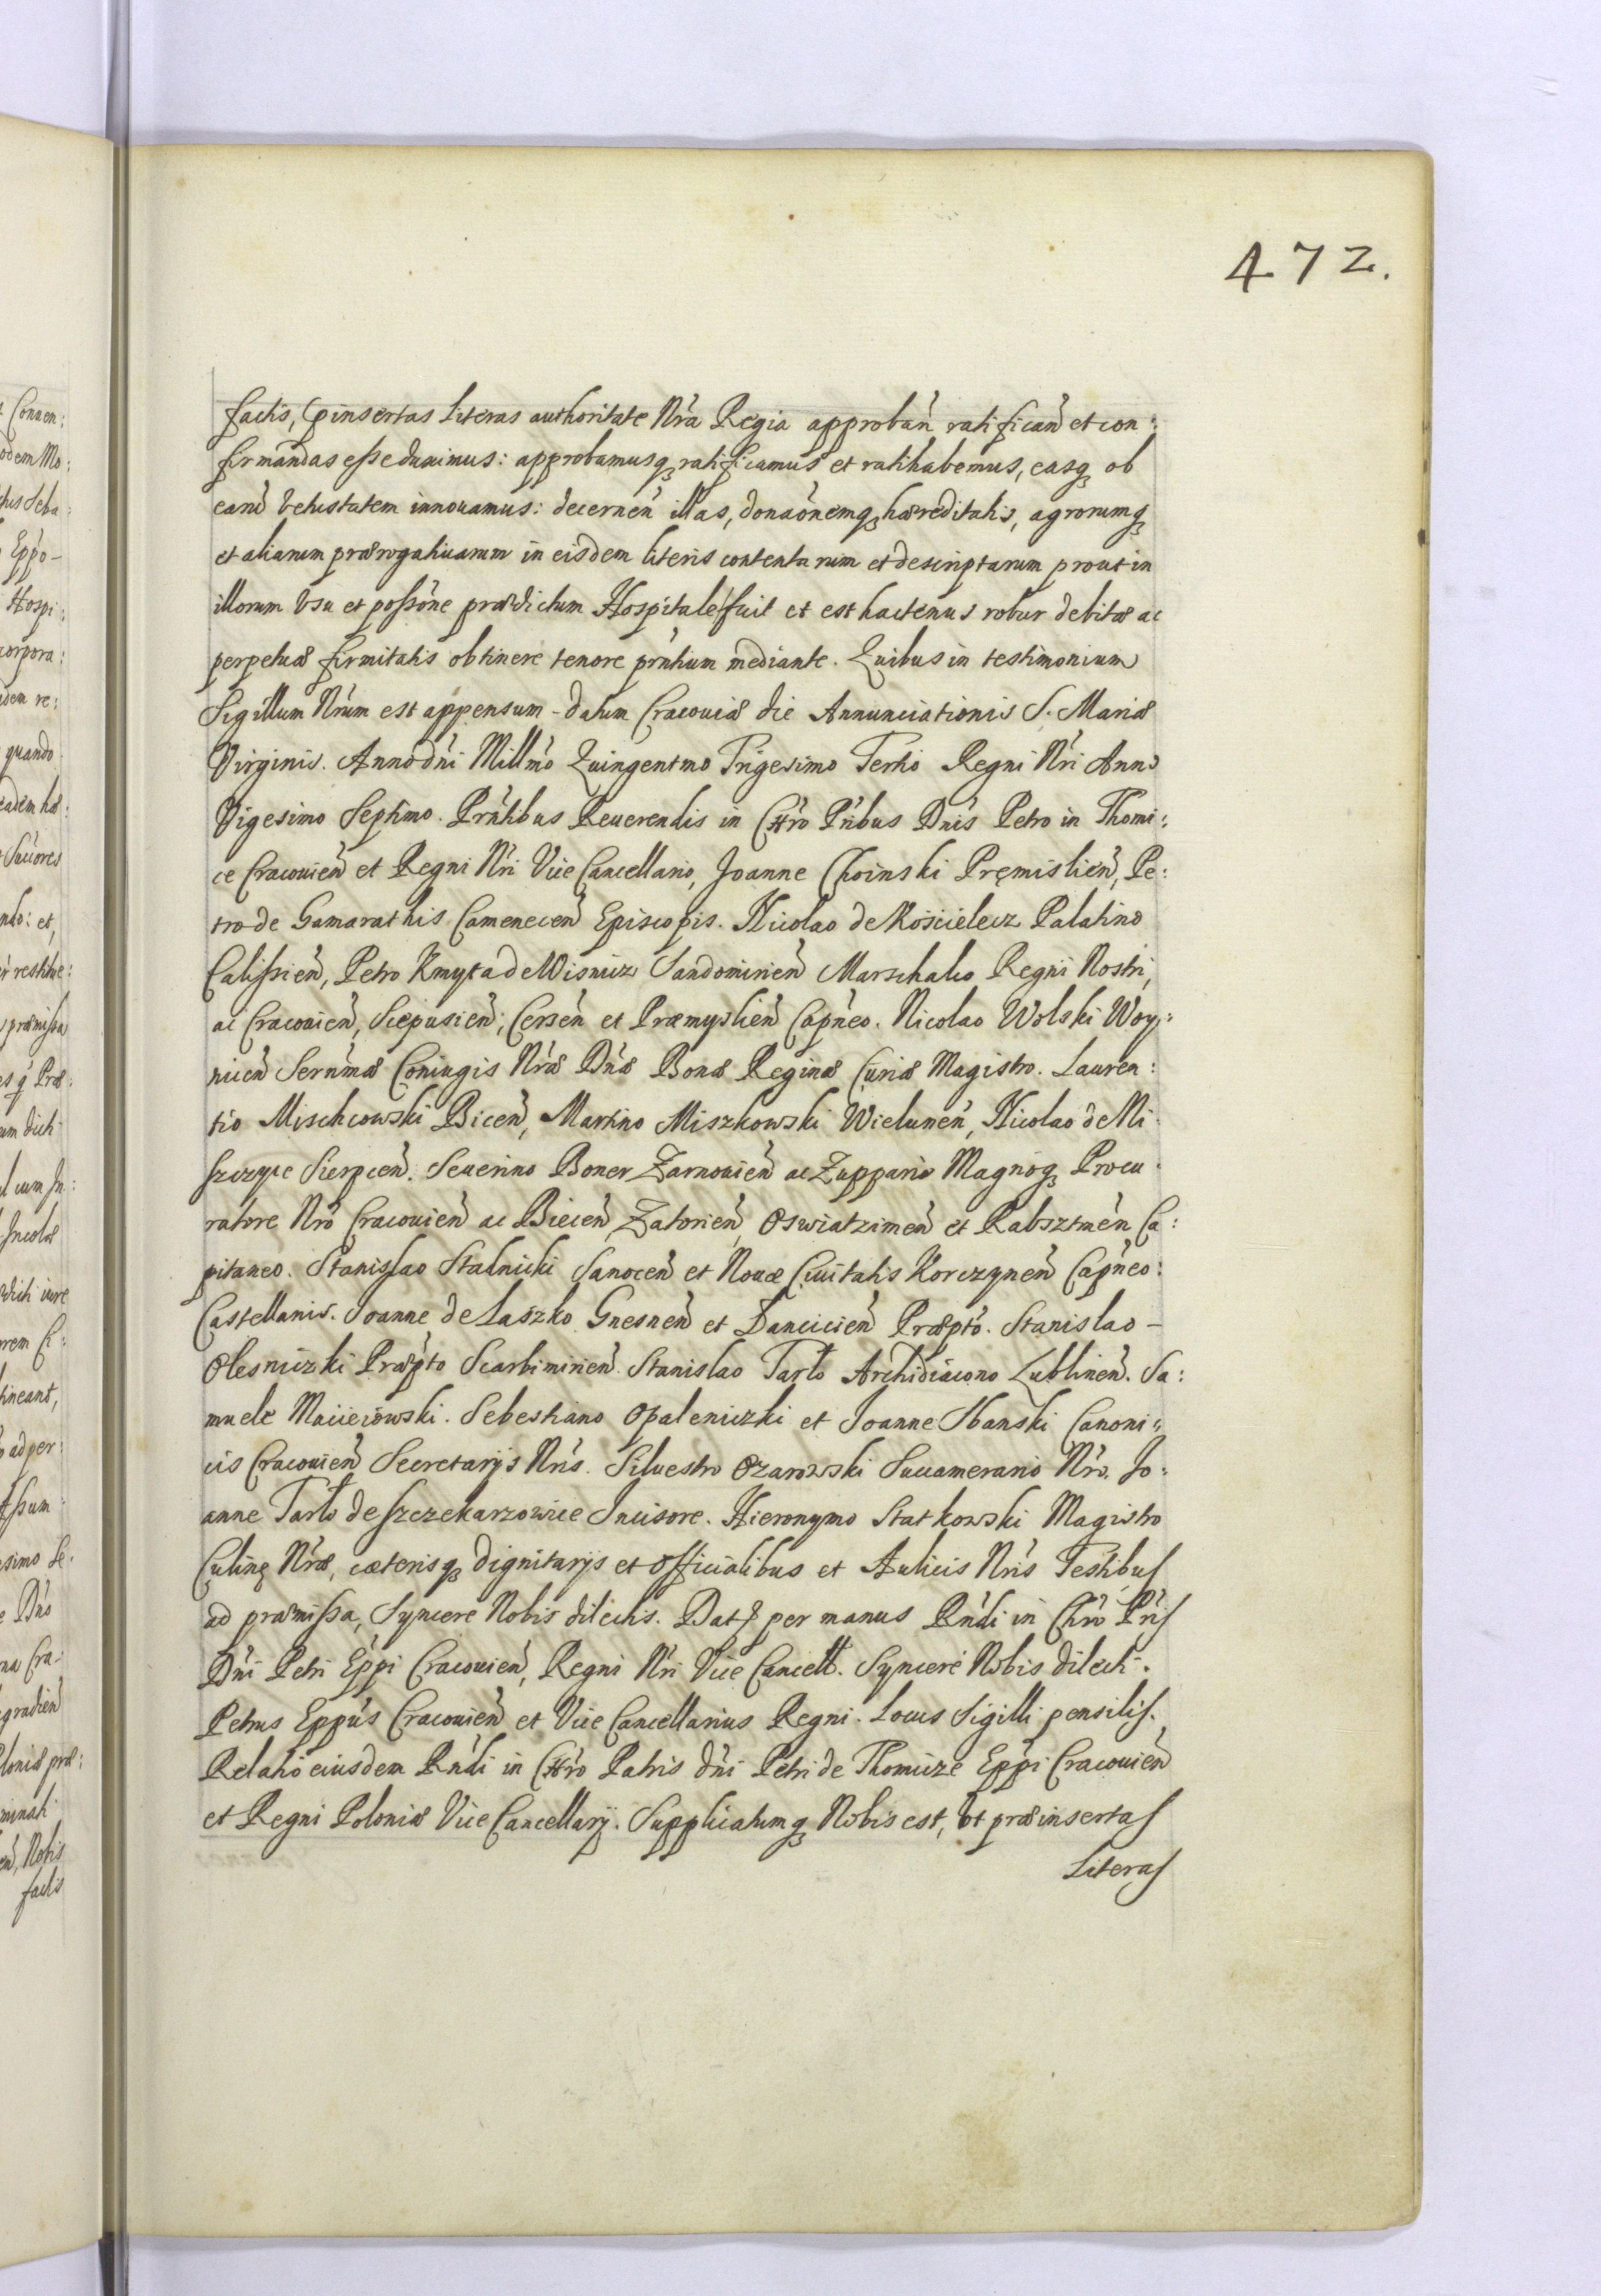 472.
factis, pinsertas Literas authoritate Nr̄a Regia approbañ ratificañ et con:
firmandas eſse duximus: approbamusq́ ratificamus et ratihabemus, easq́ ob
earu̇ Vetustatem innouamus: decerneñ illas, donaōnemq́ hæreditatis, agrorumq́
et aliarum prærogatiuarum in eisdem literis contentarum et descriptarum prout in
illorum Vsu et poſsōne prædictum Hospitale fuit et est hactenus robur debitæ ac
perpetuæ firmitatis obtinere tenore pr̄ntium mediante. Quibus in testimonium
Sigillum Nr̄um est appensum - datum Cracouiæ die Annunciationis S. Mariæ
Virginis. Anno dn̄i Mill̄mo Quingentmo Trigesimo Tertio Regni Nr̄i Anno
Vigesimo Septimo. Pr̄ntibus Reuerendis in Chr̄o Pr̄ibus Dn̄is Petro in Thomi:
ce Cracouieñ et Regni Nr̄i Vice Cancellario, Joanne Choinski Pręmislieñ, Pe:
tro de Gamarathis Cameneceñ Episcopis. Nicolao de Kościelecz Palatino
Caliſsieñ, Petro Kmyta de Wisnicz Sandomirieñ Marschalco Regni Nostri,
ac Cracouieñ, Scepusieñ, Cerseñ et Præmyslieñ Capn̄eo. Nicolao Wolski Woy:
niceñ Sern̄mæ Coniugis Nr̄æ Dn̄æ Bonæ Reginæ Curiæ Magistro. Lauren:
tio Mischcowski Biceñ, Martino Miszkowski Wieluneñ, Nicolao de Mi:
szczyce Sierpceñ. Seuerino Boner Zarnouieñ ac Zuppario Magnoq́ Procu:
ratore Nr̄o Cracouieñ ac Biecen̄, Zatorieñ, Oswiatzimeñ et Rabsztm̄eñ Ca:
pitaneo. Stanislao Stadnicki Sanoceñ et Nouæ Ciuitatis Korczyneñ Capn̄eo:
Castellanis. Joanne de Laszko Gnesneñ et Lancicieñ Præp̄to. Stanislao -
Olesniczki Præp̄to Scarbimirieñ. Stanislao Tarło Archidiacono Lublineñ. Sa:
muele Macieiowski. Sebestiano Opaleniczki et Joanne Sbanski Canoni:
cis Cracouieñ Secretarijs Nr̄is. Siluestro Ozarowski Succamerario Nr̄o. Jo:
anne Tarło de Szczekarzowice Incisore. Hieronymo Statkowski Magistro
Culinę Nr̄æ, cæterisq́ dignitarijs et Officialibus et Aulicis Nr̄is Testibus
ad præmiſsa, Syncere Nobis dilectis. Dat̄ per manus Rn̄di in Chr̄o Pr̄is
Dn̄i Petri Epp̄i Cracouieñ, Regni Nr̄i Vice Cancell. Syncere Nobis dilecti.
Petrus Epp̄us Cracouieñ et Vice Cancellarius Regni. Locus Sigilli pensilis.
Relatio eiusdem Rn̄di in Chr̄o Patris dn̄i Petri de Thomicze Epp̄i Cracouieñ
et Regni Poloniæ Vice Cancellarij. Supplicatumq́ Nobis est, Vt præinsertas
Literas